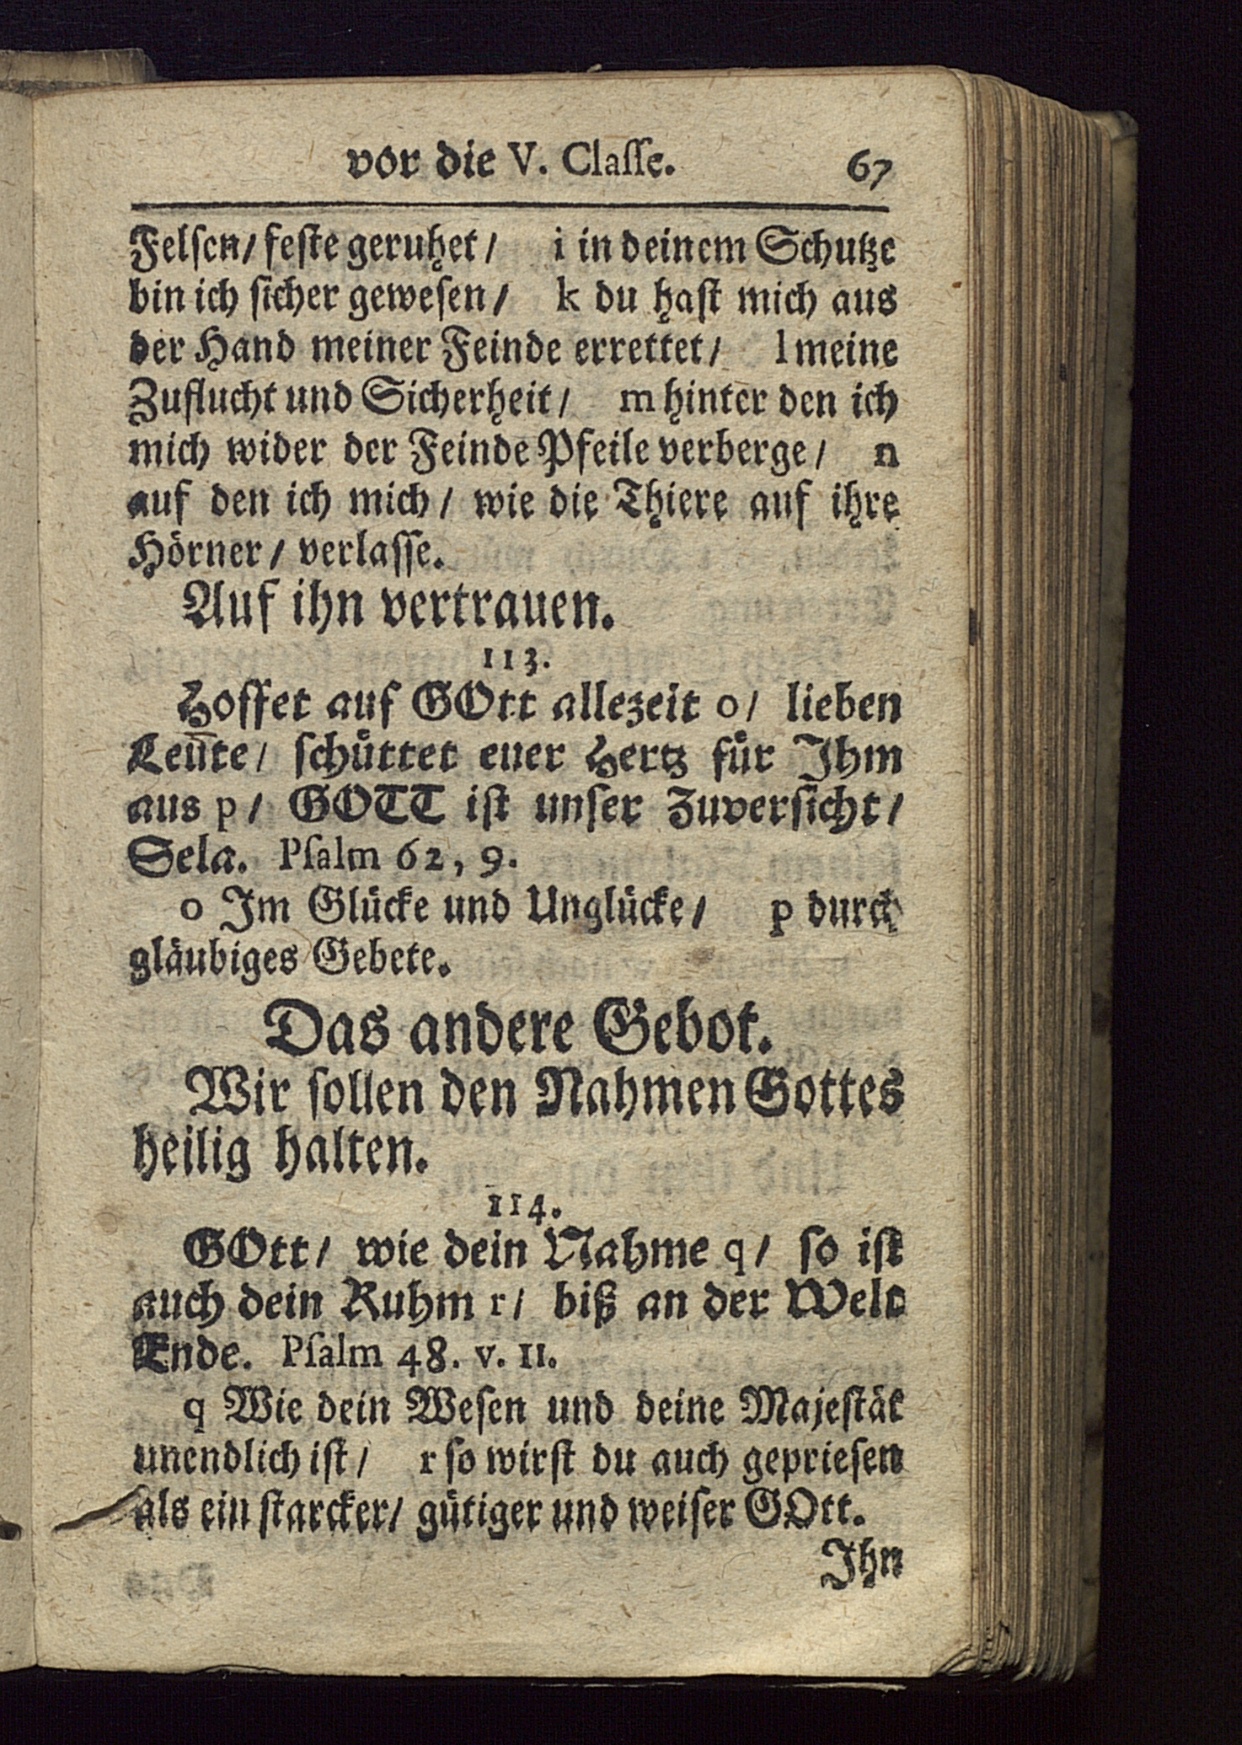 vor die V. Classe. 67
Felsen/ feste geruhet/ i in deinem Schutze
bin ich sicher gewesen/ k du hast mich aus
der Hand meiner Feinde errettet/ l meine
Zuflucht und Sicherheit/ m hinter den ich
mich wider der Feinde Pfeile verberge/ n
auf den ich mich/ wie die Thiere auf ihre
Hörner/ verlasse.
Auf ihn vertrauen.
113.
Hoffet auf GOtt allezeit o/ lieben
Leute/ schüttet euer Hertz für Ihm
aus p/ GOTT ist unser Zuversicht/
Sela. Psalm 62, 9.
o Im Glücke und Unglücke/ p durch
gläubiges Gebete.
Das andere Gebot.
Wir sollen den Nahmen Gottes
heilig halten.
114.
GOtt/ wie dein Nahme q/ so ist
auch dein Ruhm r/ biß an der Welt
Ende. Psalm 48. v. 11.
q Wie dein Wesen und deine Majestät
unendlich ist/ r so wirst du auch gepriesen
als ein starcker/ gütiger und weiser GOtt.
Ihn